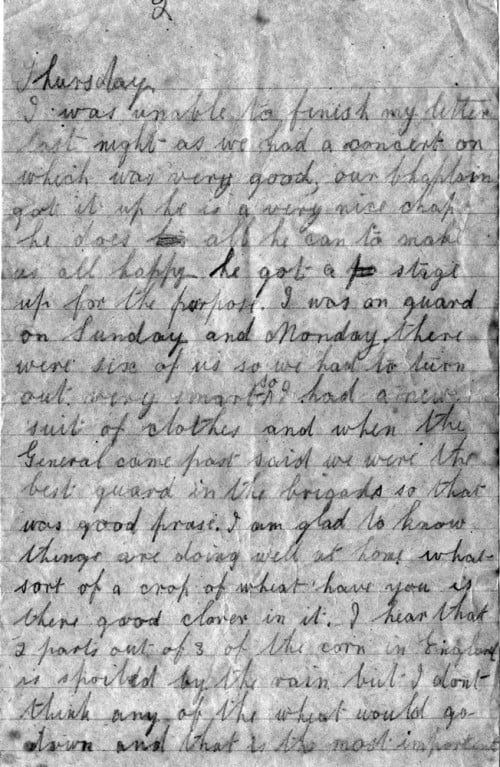 2
Thursday
I was unable to finish my letter
last night as we had a concert on
which was very good, our Chaplain
got it up he is a very nice chap
he does all he can to make
us all happy he got a stage
up for the purpose. I was on guard
on Sunday and Monday there
were six of us so we had to turn
out very smart so I had a new
suit of clothes and when the
General came past said we were the
best guard in the brigade so that
was good prase. I am glad to know
things are doing well at home what
sort of a crop of wheat have you is
there good clover in it. I hear that
2 parts out of 3 of the corn in England
is spoiled by the rain but I dont
think any of the wheat would go
down and that is the most important